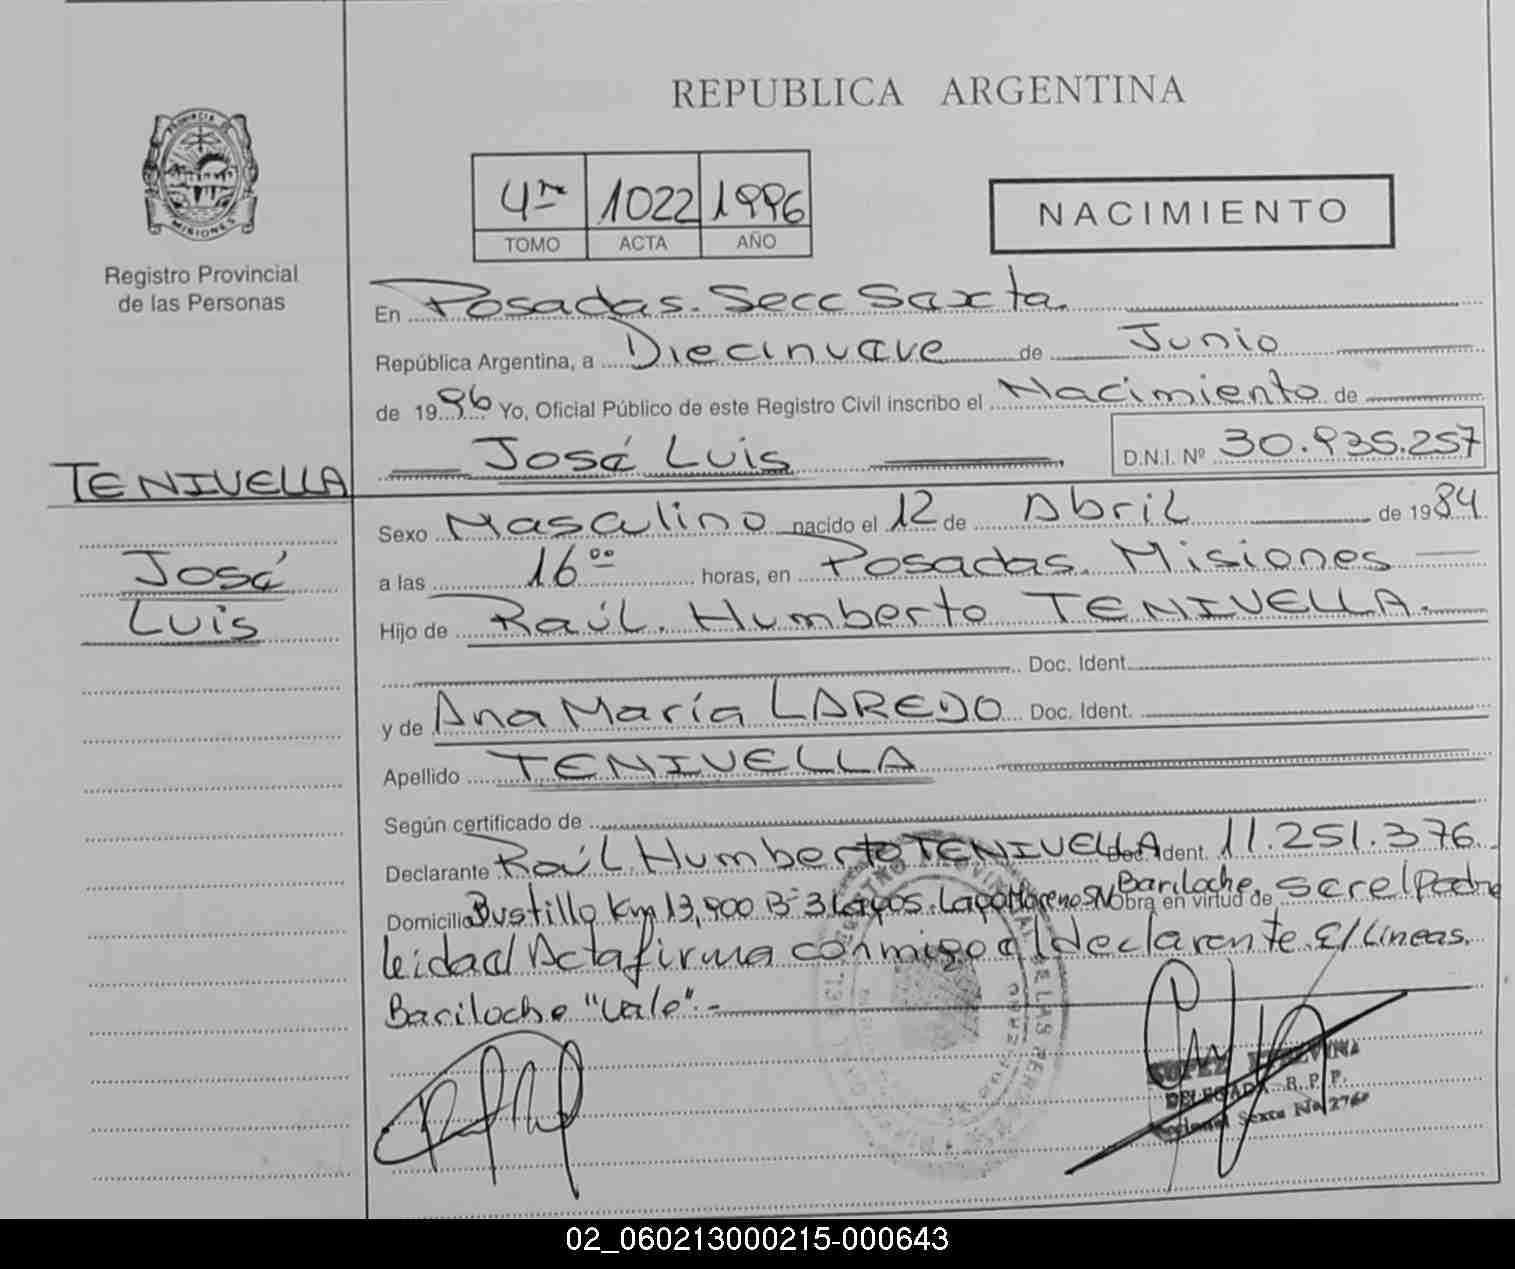 REPUBLICA ARGENTINA
PROVINCIA DE MISIONES
Registro Provincial
de las Personas
4to 1022 1996
TOMO ACTA AÑO
NACIMIENTO
En Posadas. Secc Sexta.
República Argentina, a Diecinueve de Junio
de 1996 Yo, Oficial Público de este Registro Civil inscribo el Nacimiento de
José Luis D.N.I. Nº 30.935.257
TENIVELLA
José
Luis
Sexo Masculino nacido el 12 de Abril de 1984
a las 16 00 horas, en Posadas. Misiones
Hijo de Raúl. Humberto TENIVELLA.
Doc. Ident.
y de Ana María LAREDO Doc. Ident.
Apellido TENIVELLA
Según certificado de
Declarante Raúl Humberto TENIVELLA Doc. Ident. 11.251.376
Domicilio Bustillo Km 13,900 Bº 3 Lagos. Lago Moreno S/N Bariloche Obra en virtud de ser el Padre
leida el Acta firma conmigo el declarante. E/Lineas.
Bariloche "vale".-
DELEGADA R. P. P.
Seccional Sexta Nº 276
02_060213000215-000643